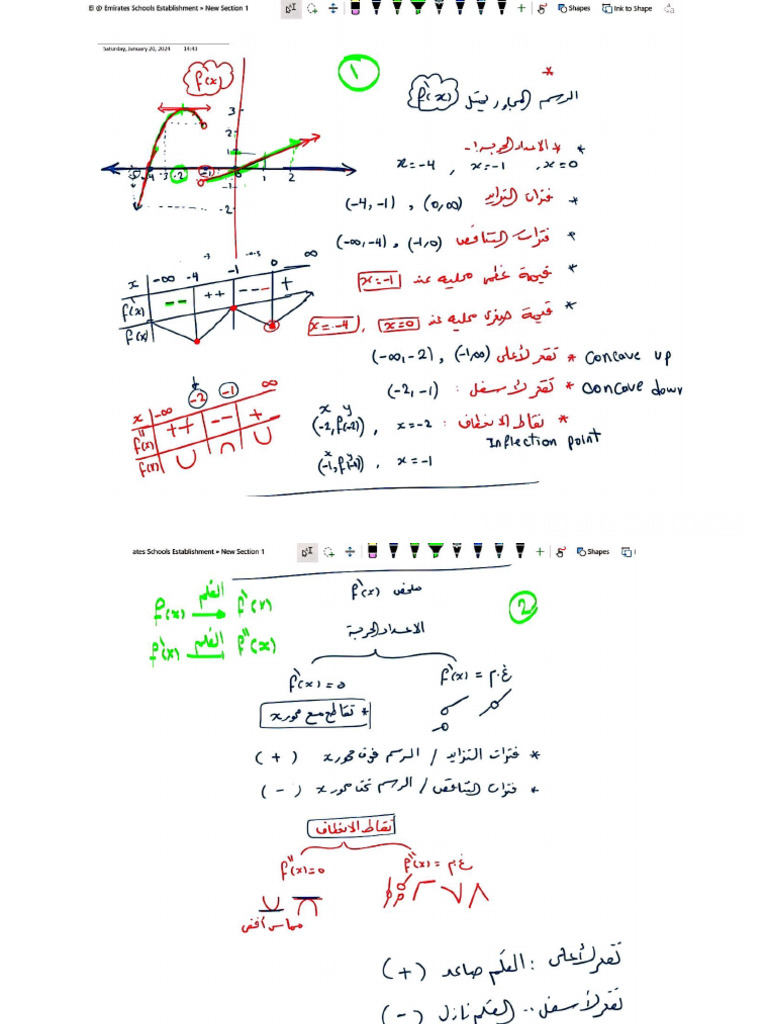 E @ Emirates Schools Establishment » New Section 1
Shapes
Ink to Shape
Saturday, January 20, 2024 14:43
f'(x)
1
*
الرسم المجاور يمثل f'(x)
3
2
1
-5 -4 -3 -2 -1 0 1 2
-1
-2
* الاعداد الحرجة :-
x=-4 , x=-1 , x=0
* فترات التزايد (-4,-1) , (0,∞)
* فترات التناقص (-∞,-4) , (-1,0)
* قيمة عظمى محلية عند x=-1
* قيمة صغرى محلية عند x=0 , x=-4
Concave up * تقعر لأعلى (-∞,-2) , (-1,∞)
Concave down * تقعر لأسفل : (-2,-1)
* نقاط الانعطاف : x=-2 , (-2,f(-2))
x y
Inflection point
x=-1 , (-1,f(-1))
x y
x -∞ -4 -1 0 ∞
f'(x) -- ++ --- +
f(x)
x -∞ -2 -1 ∞
f''(x) ++ -- +
f(x) ∪ ∩ ∪
ates Schools Establishment » New Section 1
Shapes
2
ملخص f'(x)
f(x) القلم f'(x)
f'(x) القلم f''(x)
الاعداد الحرجة
f'(x) = 0
f'(x) = غ.م
* تقاطع مع محور x
* فترات التزايد / الرسم فوق محور x (+)
* فترات التناقص / الرسم تحت محور x (-)
نقاط الانعطاف
f''(x)=0
f''(x) = غ.م
مماس أفقي
تقعر لأعلى : القلم صاعد (+)
تقعر لأسفل .. القلم نازل (-)